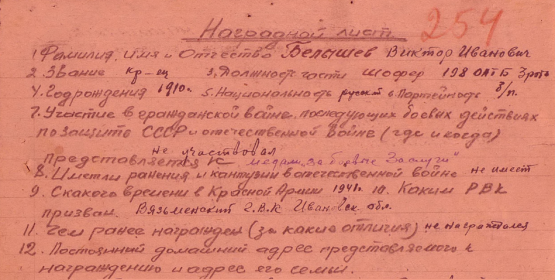 Наградной лист 254
1. Фамилия, имя и Отчество Белышев Виктор Иванович
2. Звание кр-ец 3. Должность части шофер 198 ОАТБ 3 рота
4. Год рождения 1910г. 5. Национальность русский 6. Партейность б/п.
7. Участие в гражданской войне, последующих боевых действиях
по защите СССР и отечественной войне (где и когда)
не участвовал
Представляется к медали "за боевые заслуги"
8. Иметли ранения и контузии в отечественной войне не имеет
9. С какого времени в Красной Армии 1941г. 10. Каким РВК
призван. Вяземский Г.В.К Ивановск обл.
11. Чем ранее награжден (за какие отличия) не награжался
12. Постоянный домашний адрес представляемого к
награждению и адрес его семьи.